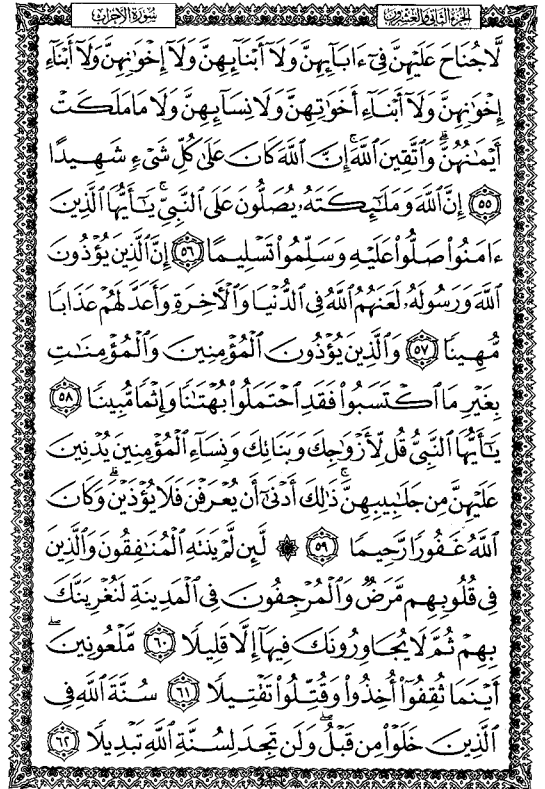 الجزء الثاني والعشرون
سورة الأحزاب
لَّا جُنَاحَ عَلَيْهِنَّ فِىٓ ءَابَآئِهِنَّ وَلَآ أَبْنَآئِهِنَّ وَلَآ إِخْوَٰنِهِنَّ وَلَآ أَبْنَآءِ
إِخْوَٰنِهِنَّ وَلَآ أَبْنَآءِ أَخَوَٰتِهِنَّ وَلَا نِسَآئِهِنَّ وَلَا مَا مَلَكَتْ
أَيْمَٰنُهُنَّ ۗ وَٱتَّقِينَ ٱللَّهَ ۚ إِنَّ ٱللَّهَ كَانَ عَلَىٰ كُلِّ شَىْءٍ شَهِيدًا
٥٥ إِنَّ ٱللَّهَ وَمَلَٰٓئِكَتَهُۥ يُصَلُّونَ عَلَى ٱلنَّبِىِّ ۚ يَٰٓأَيُّهَا ٱلَّذِينَ
ءَامَنُوا۟ صَلُّوا۟ عَلَيْهِ وَسَلِّمُوا۟ تَسْلِيمًا ٥٦ إِنَّ ٱلَّذِينَ يُؤْذُونَ
ٱللَّهَ وَرَسُولَهُۥ لَعَنَهُمُ ٱللَّهُ فِى ٱلدُّنْيَا وَٱلْءَاخِرَةِ وَأَعَدَّ لَهُمْ عَذَابًا
مُّهِينًا ٥٧ وَٱلَّذِينَ يُؤْذُونَ ٱلْمُؤْمِنِينَ وَٱلْمُؤْمِنَٰتِ
بِغَيْرِ مَا ٱكْتَسَبُوا۟ فَقَدِ ٱحْتَمَلُوا۟ بُهْتَٰنًا وَإِثْمًا مُّبِينًا ٥٨
يَٰٓأَيُّهَا ٱلنَّبِىُّ قُل لِّأَزْوَٰجِكَ وَبَنَاتِكَ وَنِسَآءِ ٱلْمُؤْمِنِينَ يُدْنِينَ
عَلَيْهِنَّ مِن جَلَٰبِيبِهِنَّ ۚ ذَٰلِكَ أَدْنَىٰٓ أَن يُعْرَفْنَ فَلَا يُؤْذَيْنَ ۗ وَكَانَ
ٱللَّهُ غَفُورًا رَّحِيمًا ٥٩ ۞ لَّئِن لَّمْ يَنتَهِ ٱلْمُنَٰفِقُونَ وَٱلَّذِينَ
فِى قُلُوبِهِم مَّرَضٌ وَٱلْمُرْجِفُونَ فِى ٱلْمَدِينَةِ لَنُغْرِيَنَّكَ
بِهِمْ ثُمَّ لَا يُجَاوِرُونَكَ فِيهَآ إِلَّا قَلِيلًا ٦٠ مَّلْعُونِينَ ۖ
أَيْنَمَا ثُقِفُوٓا۟ أُخِذُوا۟ وَقُتِّلُوا۟ تَقْتِيلًا ٦١ سُنَّةَ ٱللَّهِ فِى
ٱلَّذِينَ خَلَوْا۟ مِن قَبْلُ ۖ وَلَن تَجِدَ لِسُنَّةِ ٱللَّهِ تَبْدِيلًا ٦٢